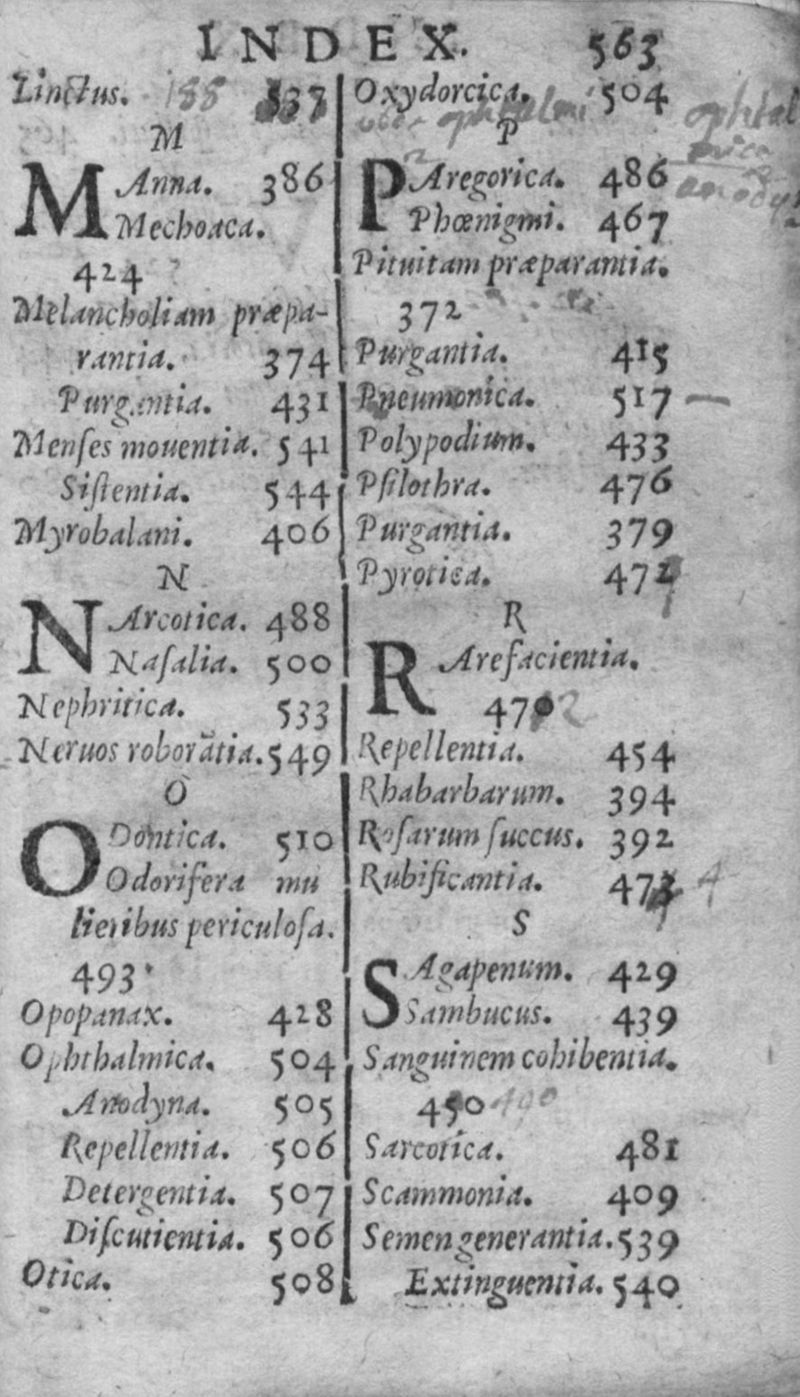 INDEX. 563
Linctus. 188
M
MAnna. 386
Mechoaca.
424
Melancholiam præpa-
rantia. 374
Purgantia. 431
Menſes mouentia. 541
Siſtentia. 544
Myrobalani. 406
N
NArcotica. 488
Naſalia. 500
Nephritica. 533
Neruos roborātia. 549
O
ODontica. 510
Odorifera mu
lieribus periculoſa.
493
Opopanax. 428
Ophthalmica. 504
Anodyna. 505
Repellentia. 506
Detergentia. 507
Diſcutientia. 506
Otica. 508
Oxydorcica. 504
P
PAregorica. 486
Phœnigmi. 467
Pituitam præparantia.
372
Purgantia. 415
Pneumonica. 517
Polypodium. 433
Pſilothra. 476
Purgantia. 379
Pyrotica. 472
R
RArefacientia.
Repellentia. 454
Rhabarbarum. 394
Roſarum ſuccus. 392
Rubificantia.
S
SAgapenum. 429
Sambucus. 439
Sanguinem cohibentia.
450 490
Sarcotica. 481
Scammonia. 409
Semen generantia. 539
Extinguentia. 540